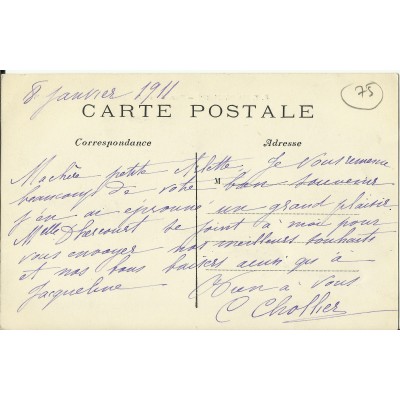 8 janvier 1911
75
CARTE POSTALE
Correspondance
Adresse
Ma chère petite Arlette. Je vous remercie
beaucoup de votre M bon souvenir
j'en ai éprouvé un grand plaisir.
Melle D'harcourt se joint à moi pour
vous envoyer nos meilleurs souhaits
et nos bons baisers ainsi qu'à
Jacqueline Bien à vous
C Chollier